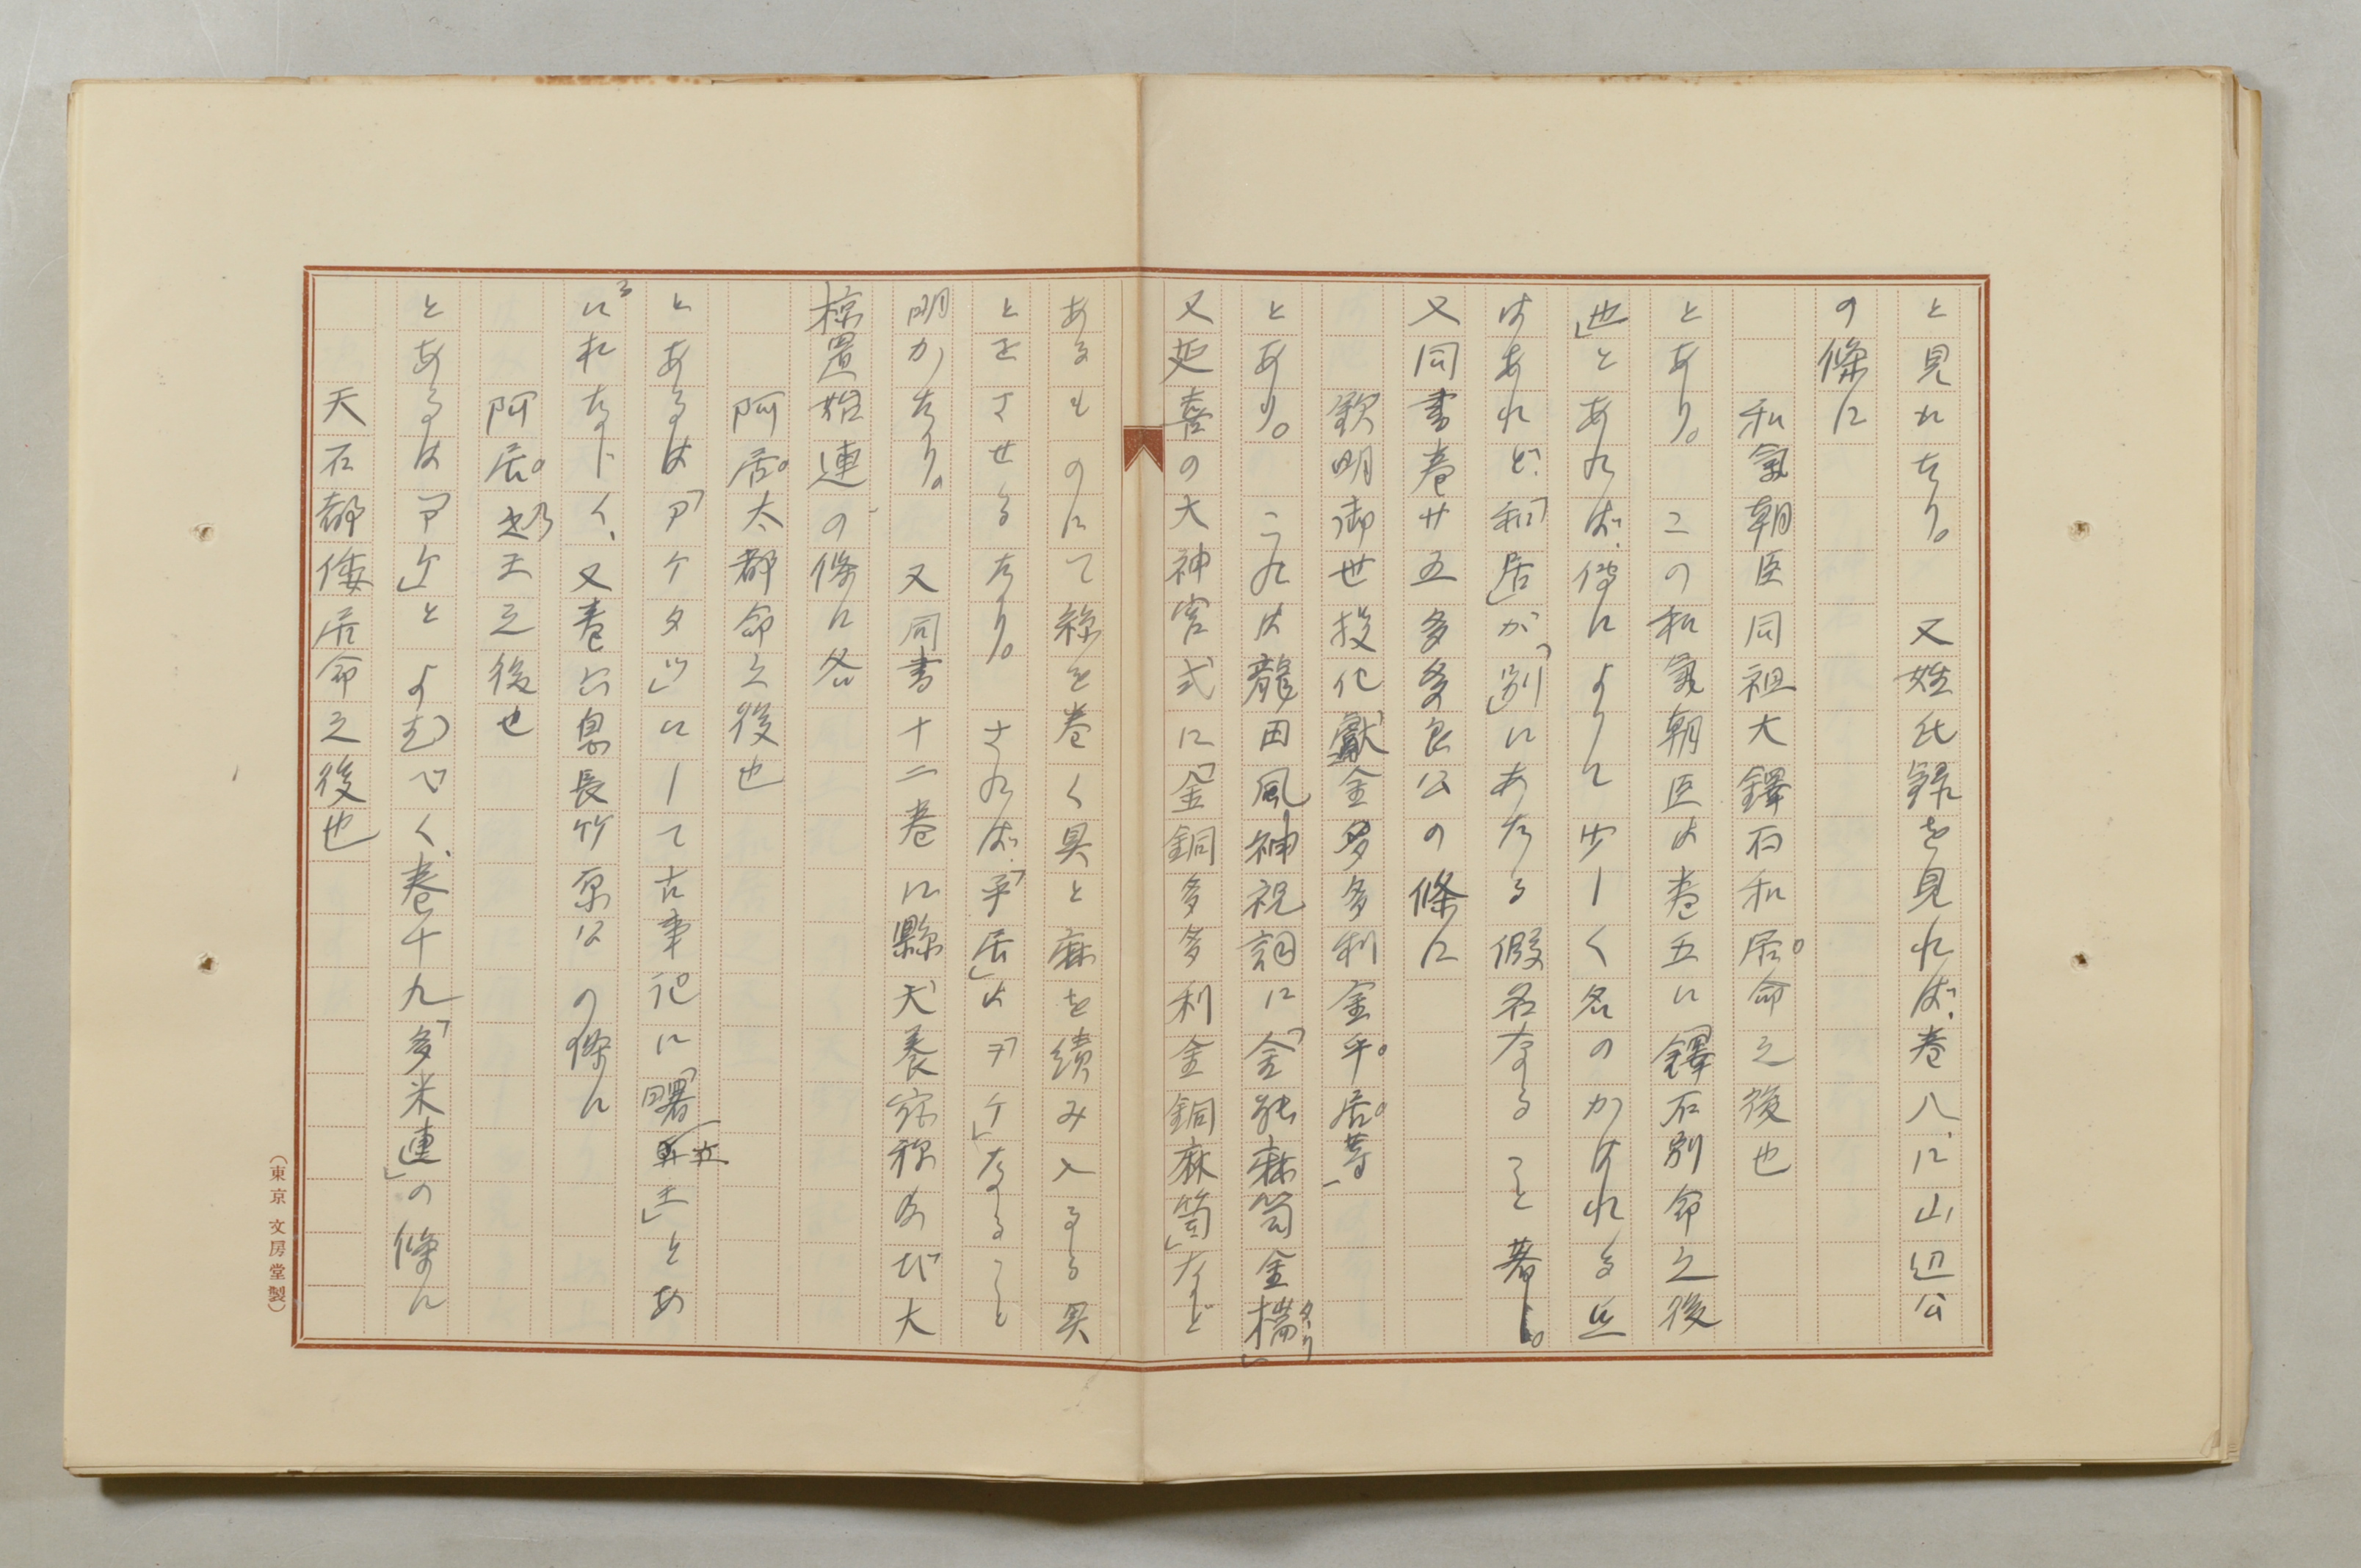 と見えたり。又姓氏録を見れば、巻八、に山辺公
の條に
和氣朝臣同祖大鐸石和居命之後也
とあり。この和氣朝臣は巻五に鐸石別命之後
也」とあれば、傳によりて少しく名のかはれる
はあれど、「和居」が「別」にあたる假名なること著し。
又同書巻廿五多々良公の條に
欽明御世投化獻金多多利金乎居等
とあり。これは龍田風神祝詞に「金能麻笥金㯓タヽリ」
又延喜の大神宮式に「金銅多多利金銅麻笥」など
あるものにて線を巻く具と麻を績み入るる具
とをさせるなり。されば、「乎居」は「ヲケ」なること
明かなり。又同書十二巻に縣犬養宿祢及び大
椋置始連の條に各
阿居太都命之後也
とあるは「アケタツ」にして古事記に「曙立王」とあ
るにおなじく、又巻六息長竹原公の條に
阿居乃王之後也
とあるは「アケ」とよむべく、巻十九「多米連」の條に
天石都倭居命之後也
(東京 文房堂製)